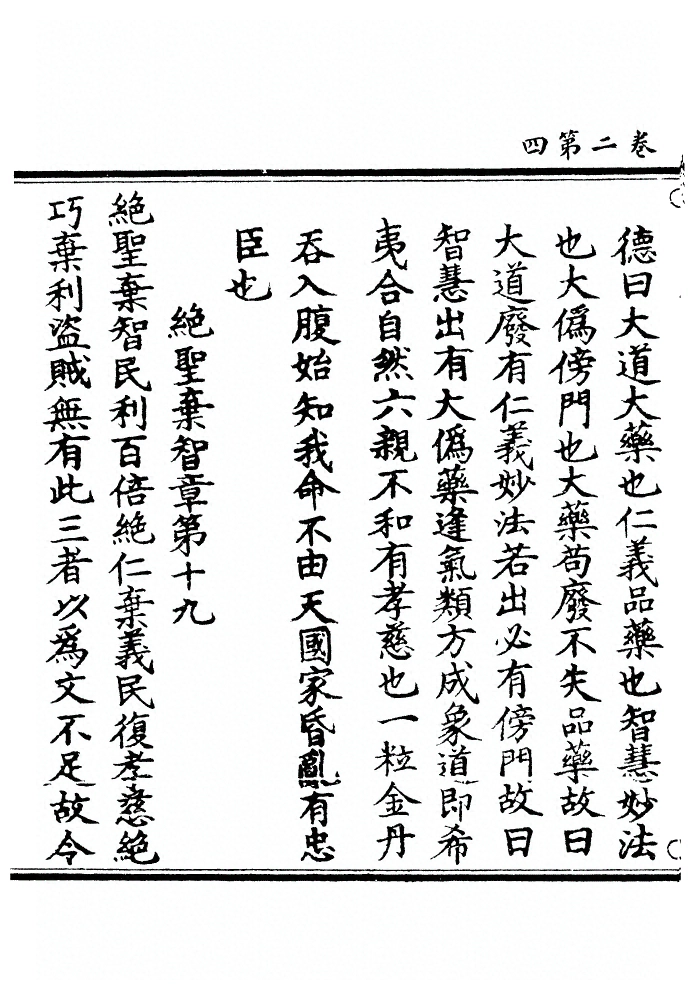 卷二第四
德曰大道大藥也仁義品藥也智慧妙法
也大僞傍門也大藥苟廢不失品藥故曰
大道廢有仁義妙法若出必有傍門故曰
智慧出有大僞藥逢氣類方成象道即希
夷合自然六親不和有孝慈也一粒金丹
吞入腹始知我命不由天國家昏亂有忠
臣也
絕聖棄智章第十九
絕聖棄智民利百倍絕仁棄義民復孝慈絕
巧棄利盜賊無有此三者以爲文不足故令